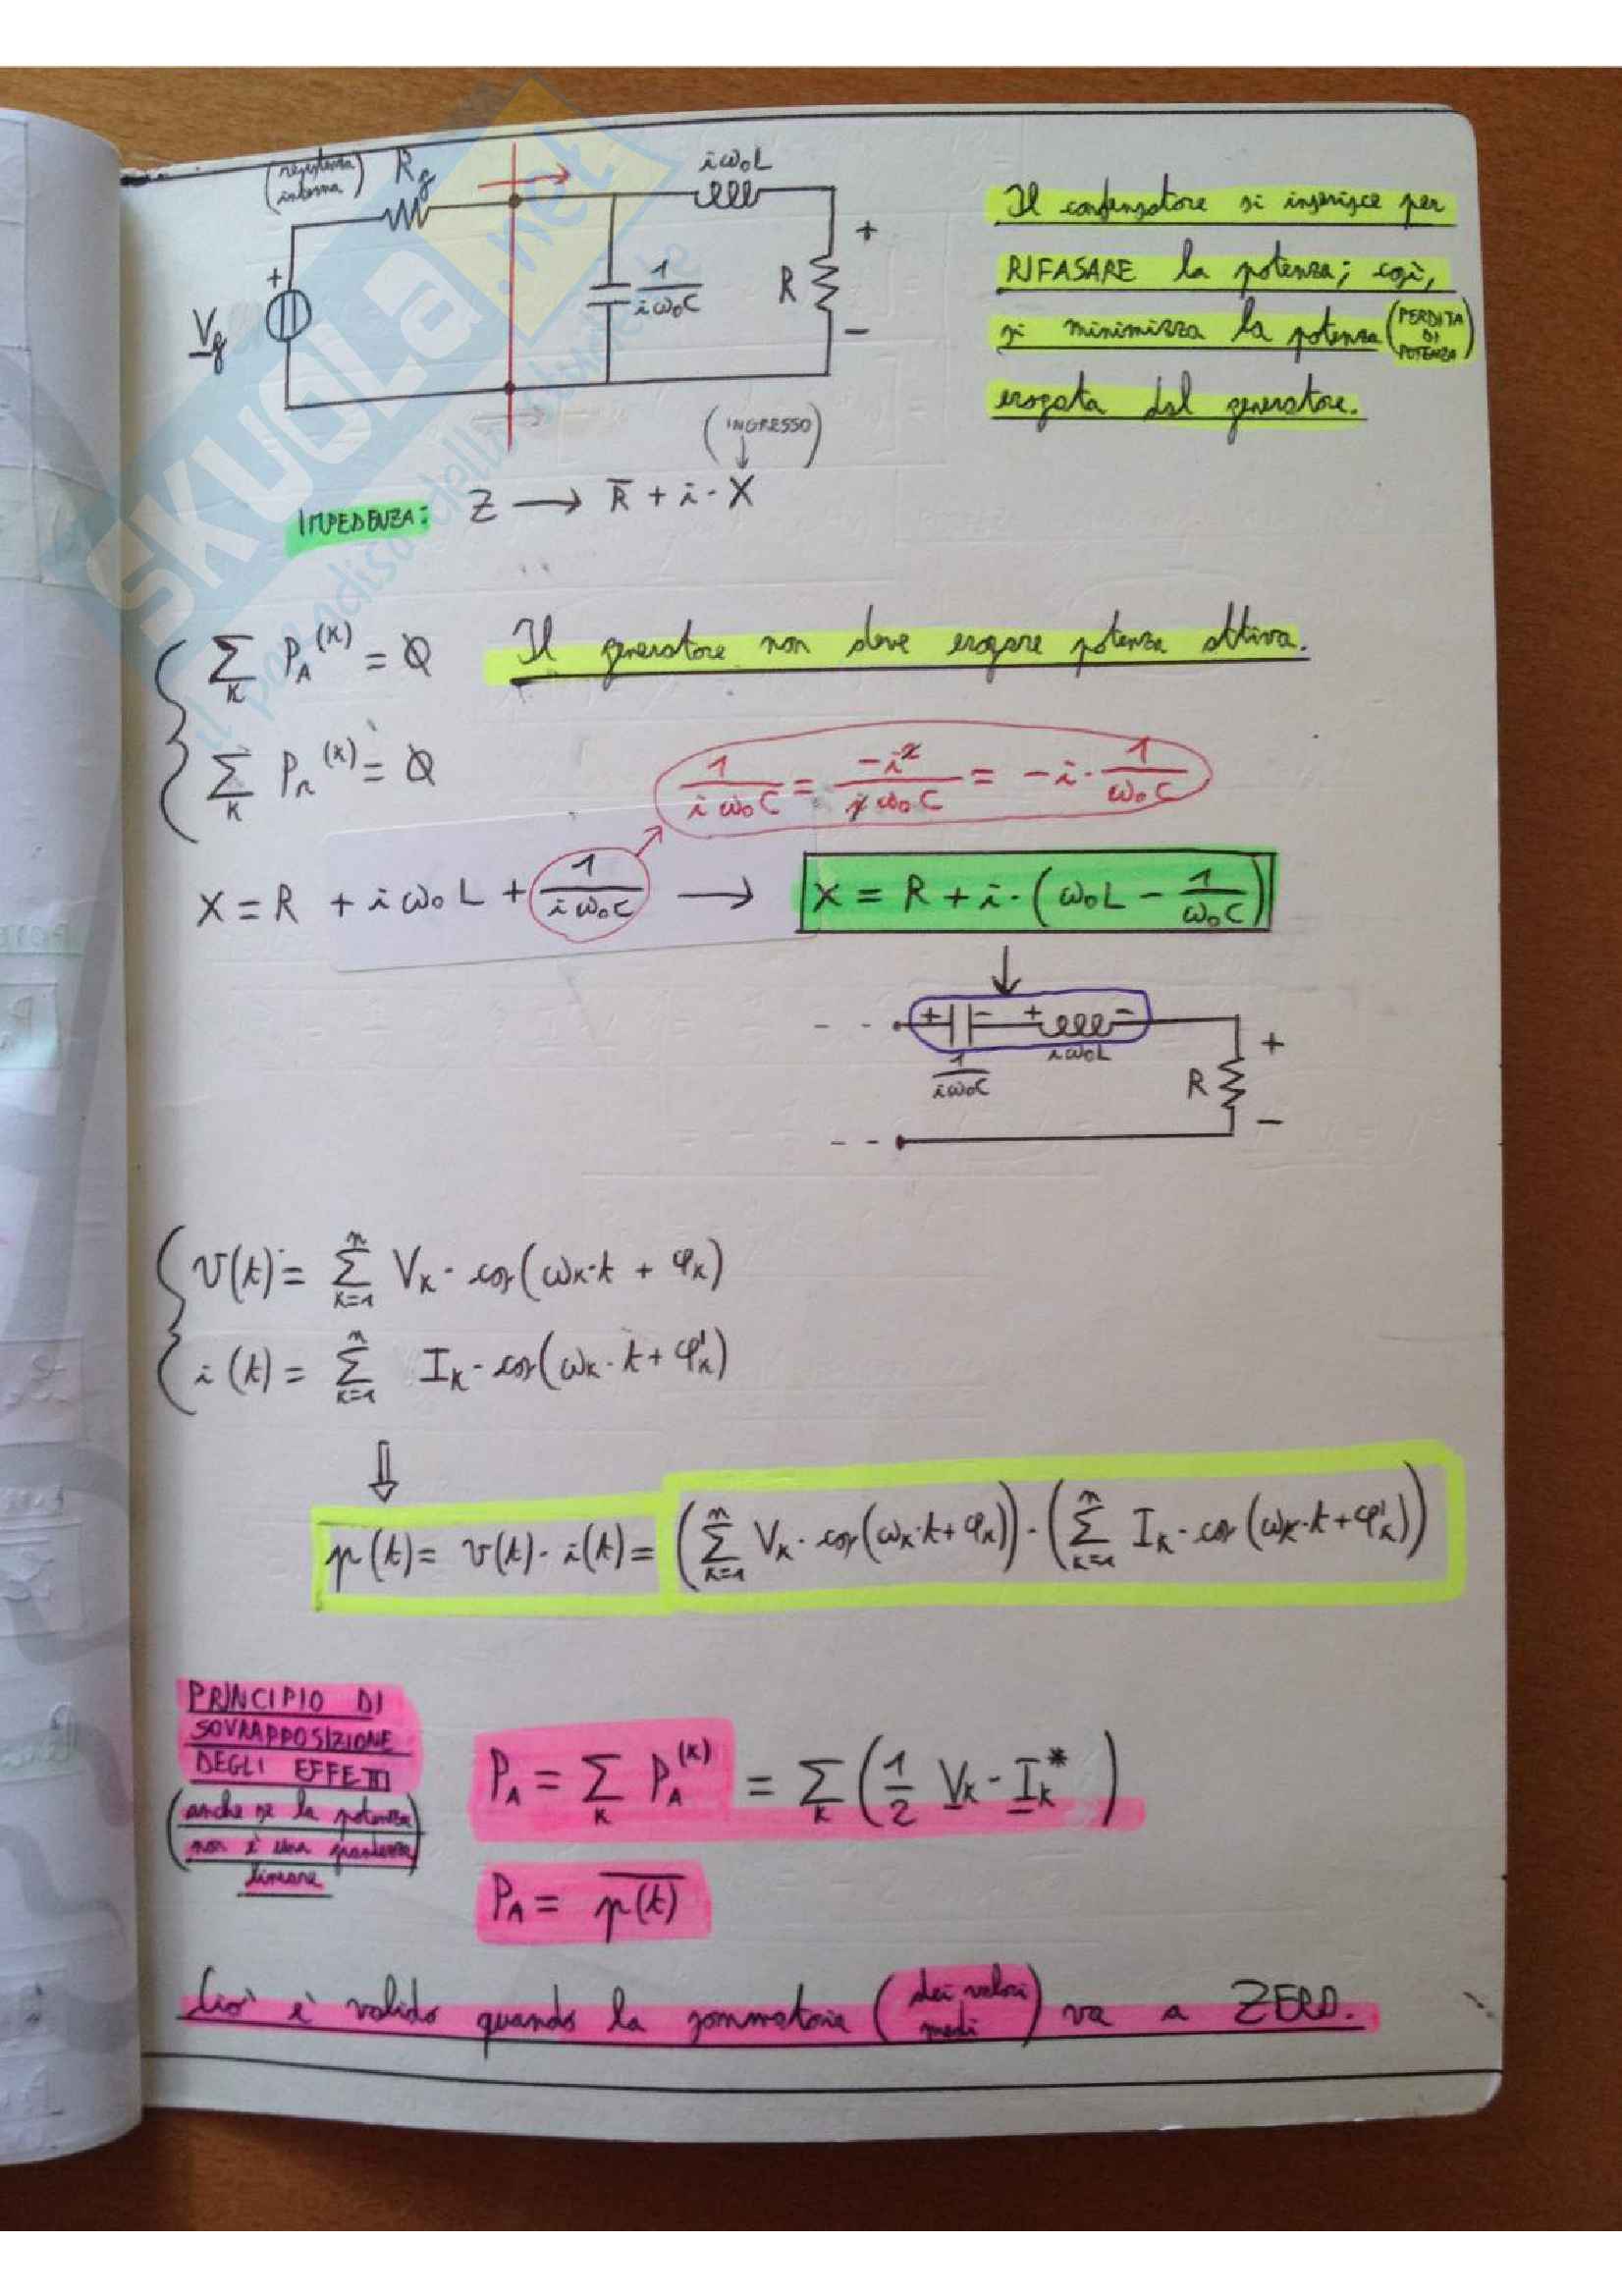 (resistenza interna) Rg
iω₀L
+
Vg
1/(iω₀C)
R
+
−
Il condensatore si inserisce per
RIFASARE la potenza; così,
si minimizza la potenza (PERDITA DI POTENZA)
erogata dal generatore.
(INGRESSO)
IMPEDENZA: Z → R̄ + i · X
∑K PA^(K) = 0 Il generatore non deve erogare potenza attiva.
∑K Pr^(K) = 0
1/(iω₀C) = −i²/(iω₀C) = −i · 1/(ω₀C)
X = R + iω₀L + 1/(iω₀C) → X = R + i · (ω₀L − 1/(ω₀C))
+ − + −
1/(iω₀C) iω₀L
R
+
−
v(t) = ∑K=1^n VK · cos(ωK·t + φK)
i(t) = ∑K=1^n IK · cos(ωK·t + φ'K)
⇓
p(t) = v(t) · i(t) = (∑K=1^n VK · cos(ωK·t + φK)) · (∑K=1^n IK · cos(ωK·t + φ'K))
PRINCIPIO DI
SOVRAPPOSIZIONE
DEGLI EFFETTI
(anche se la potenza
non è una grandezza)
lineare
PA = ∑K PA^(K) = ∑K (1/2 VK · IK*)
PA = p(t)
Ciò è valido quando la sommatoria (dei valori medi) va a ZERO.
SKUOLA.net
il paradiso dello studente